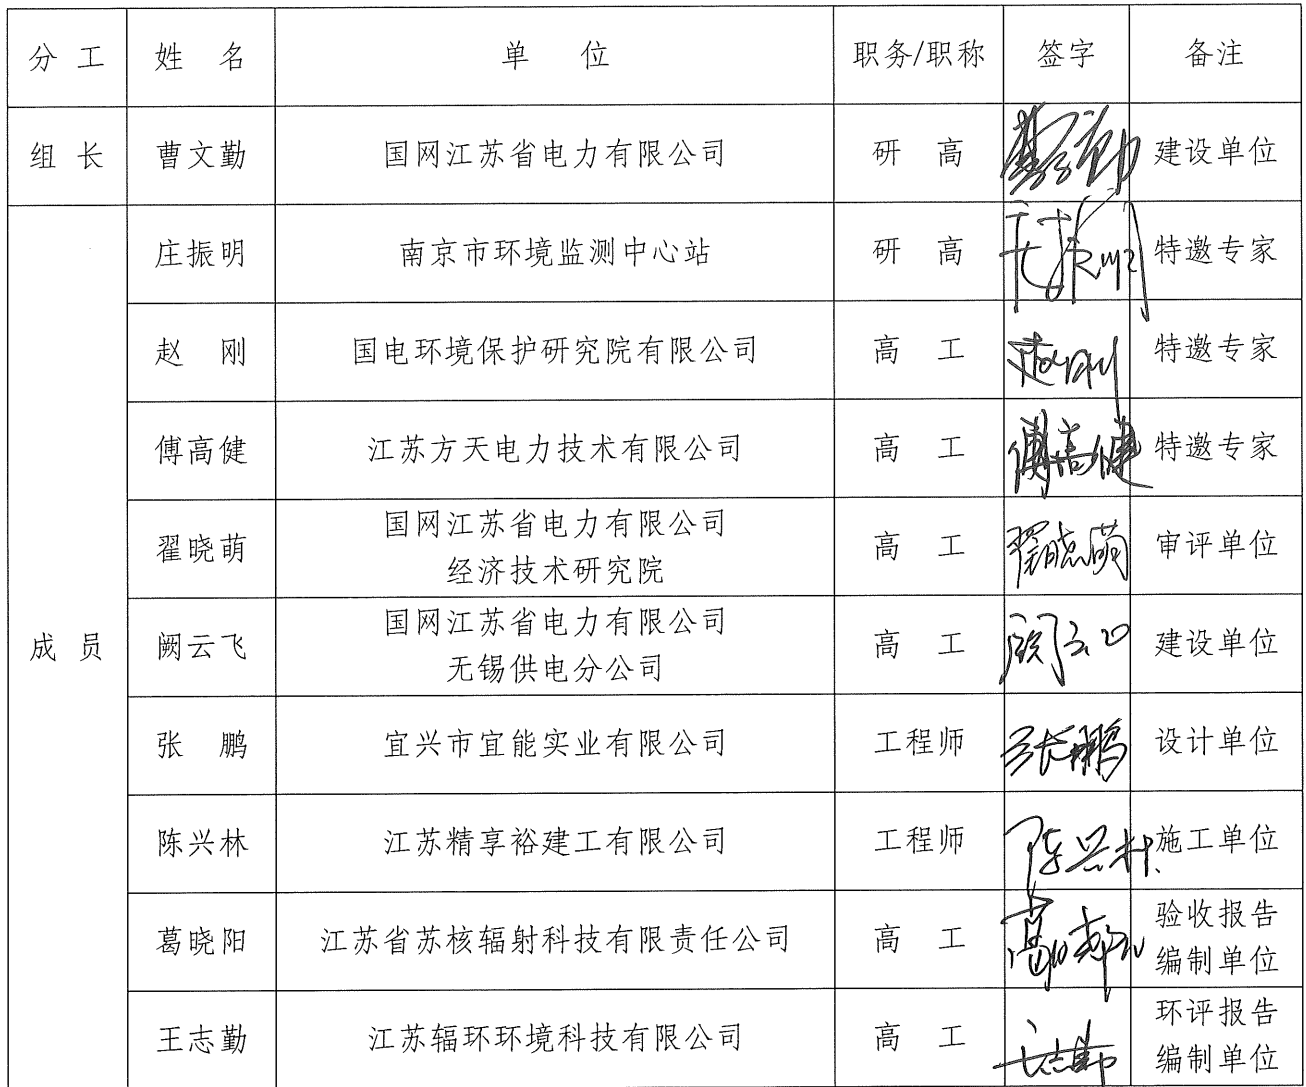 分工 姓名 单位 职务/职称 签字 备注
组长 曹文勤 国网江苏省电力有限公司 研高 建设单位
庄振明 南京市环境监测中心站 研高 庄振明 特邀专家
赵刚 国电环境保护研究院有限公司 高工 赵刚 特邀专家
傅高健 江苏方天电力技术有限公司 高工 傅高健 特邀专家
翟晓萌 国网江苏省电力有限公司 高工 翟晓萌 审评单位
经济技术研究院
成员 阙云飞 国网江苏省电力有限公司 高工 建设单位
无锡供电分公司
张鹏 宜兴市宜能实业有限公司 工程师 张鹏 设计单位
陈兴林 江苏精享裕建工有限公司 工程师 陈兴林 施工单位
葛晓阳 江苏省苏核辐射科技有限责任公司 高工 验收报告
编制单位
王志勤 江苏辐环环境科技有限公司 高工 王志勤 环评报告
编制单位